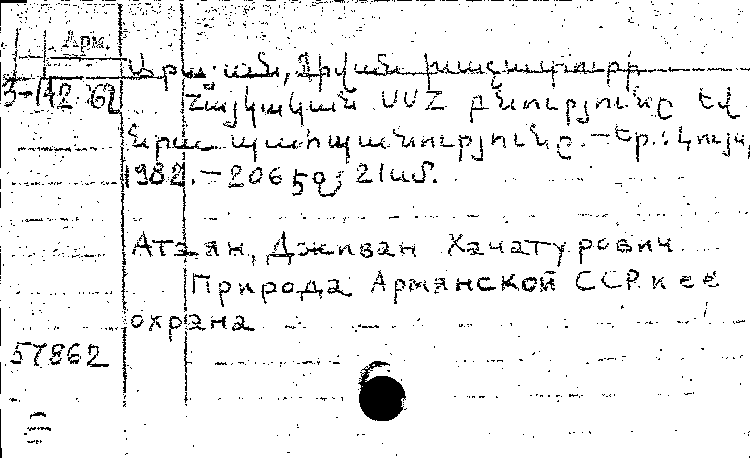 Арм.
Ջիվան Խաչատուրի
Հայկական ՍՍՀ բնությունը եվ
նրա պահպանությունը.—Եր.: Լույս,
1982.—206 էջ; 21սմ.
Атаян, Дживан Хачатурович
Природа Армянской ССР и ее
охрана
57862